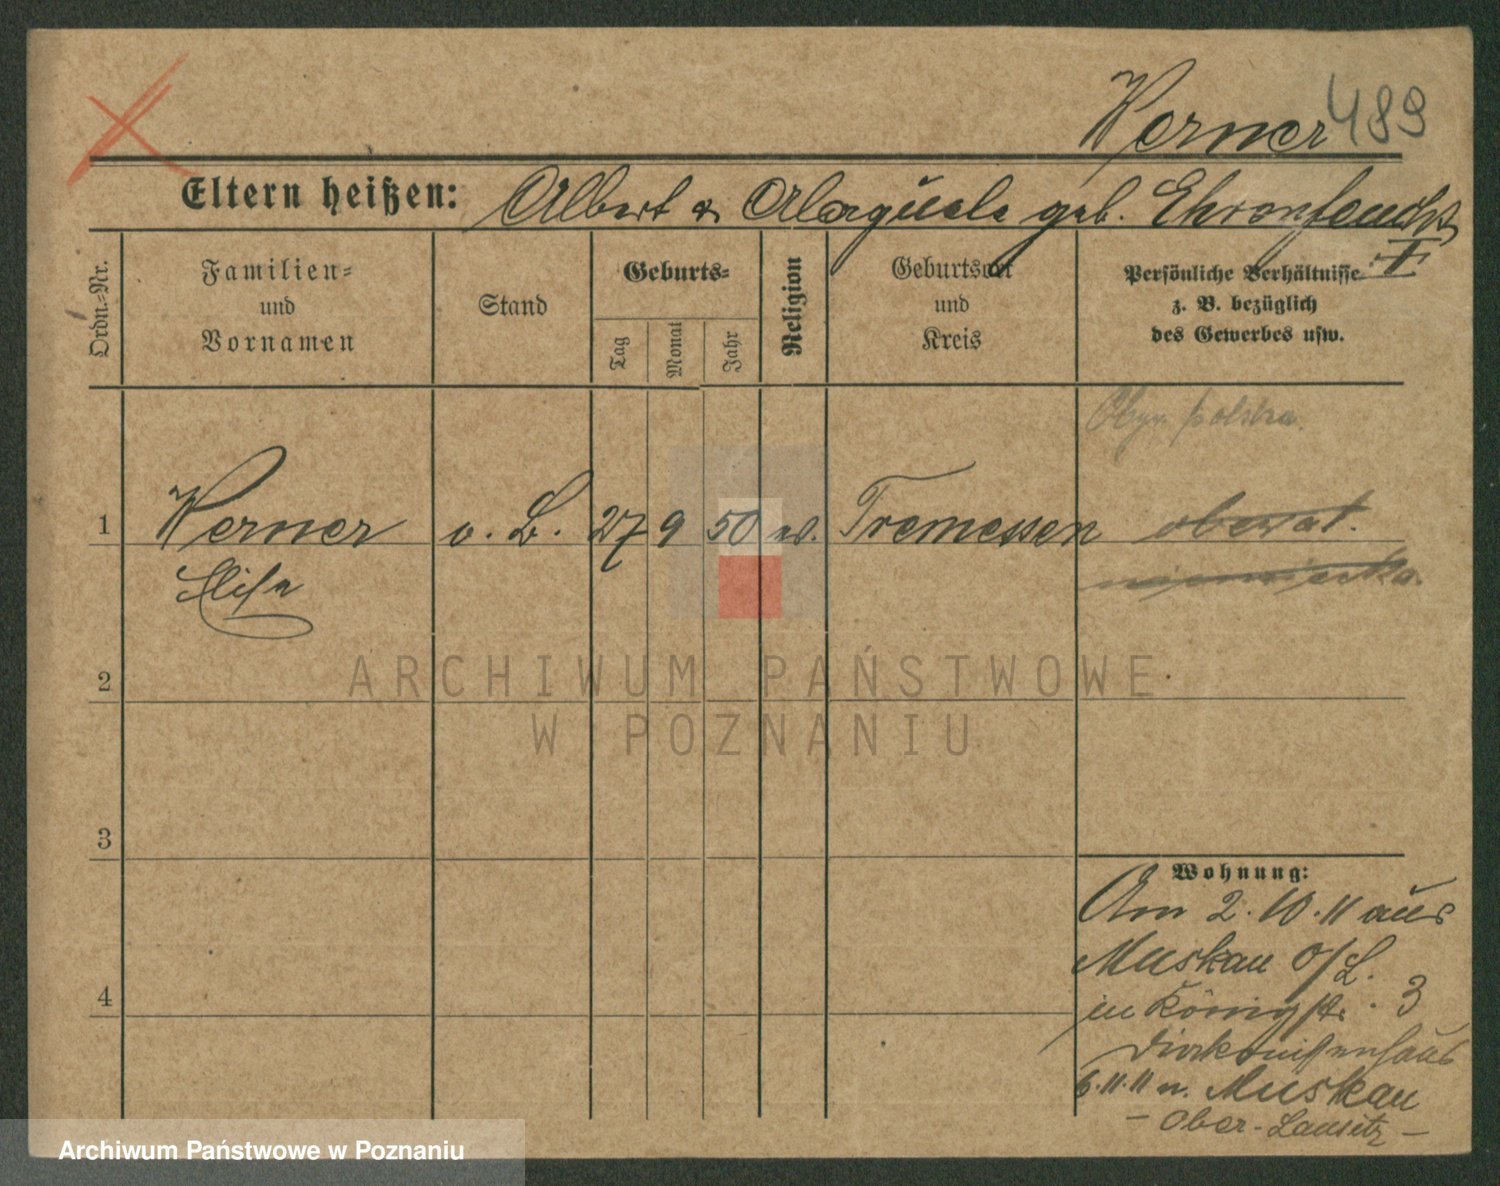 Werner 489
Eltern heißen: Albert & geb. Ehrenfeucht
Ordn.-Nr.
Familien-
und
Vornamen
Stand
Geburts-
Tag
Monat
Jahr
Religion
Geburtsort
und
Kreis
Persönliche Verhältnisse
z. B. bezüglich
des Gewerbes usw.
Obyw. polska.
1 Werner o. B. 27 9 50 ev. Tremessen obywat.
Elise niemiecka.
2
3
4
Wohnung:
Am 2.10.11 aus
Muskau O/L.
in Königstr. 3
Diakonissenhaus
6.11.11 n. Muskau
- Ober-Lausitz -
ARCHIWUM PAŃSTWOWE
W POZNANIU
Archiwum Państwowe w Poznaniu